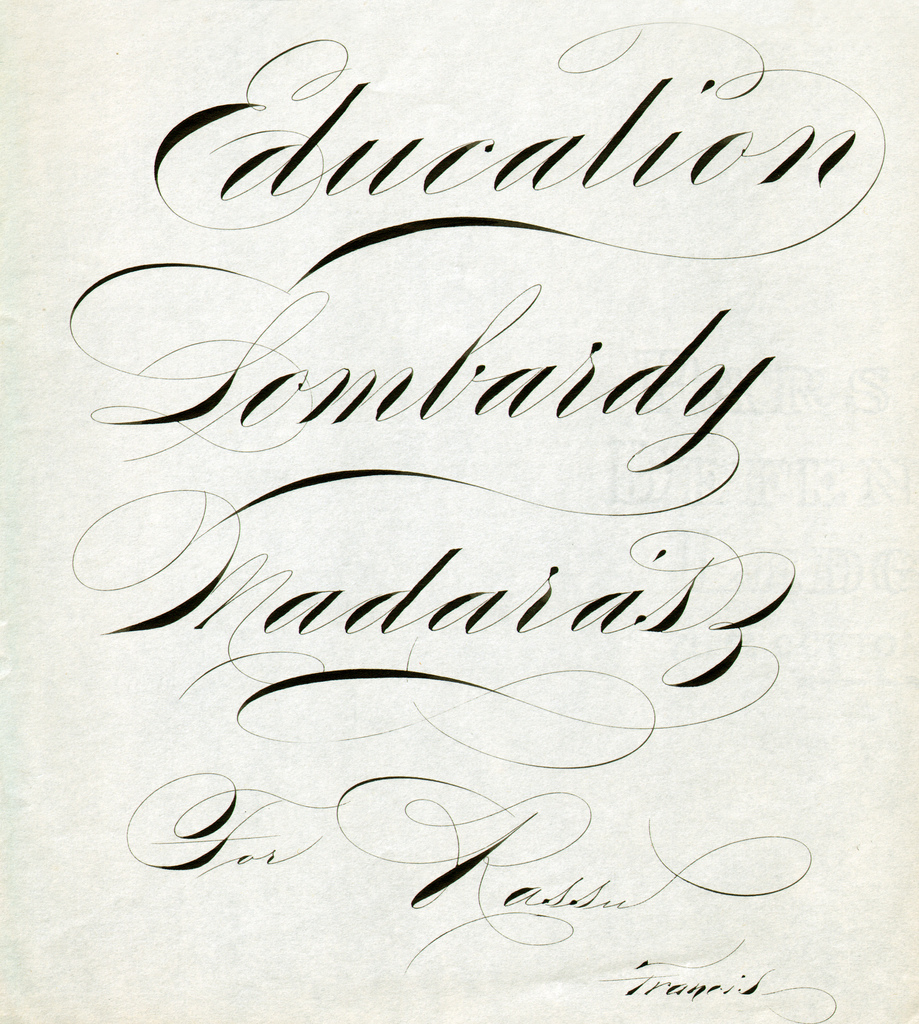 Education
Lombardy
Madarász
For Rassu
Francis